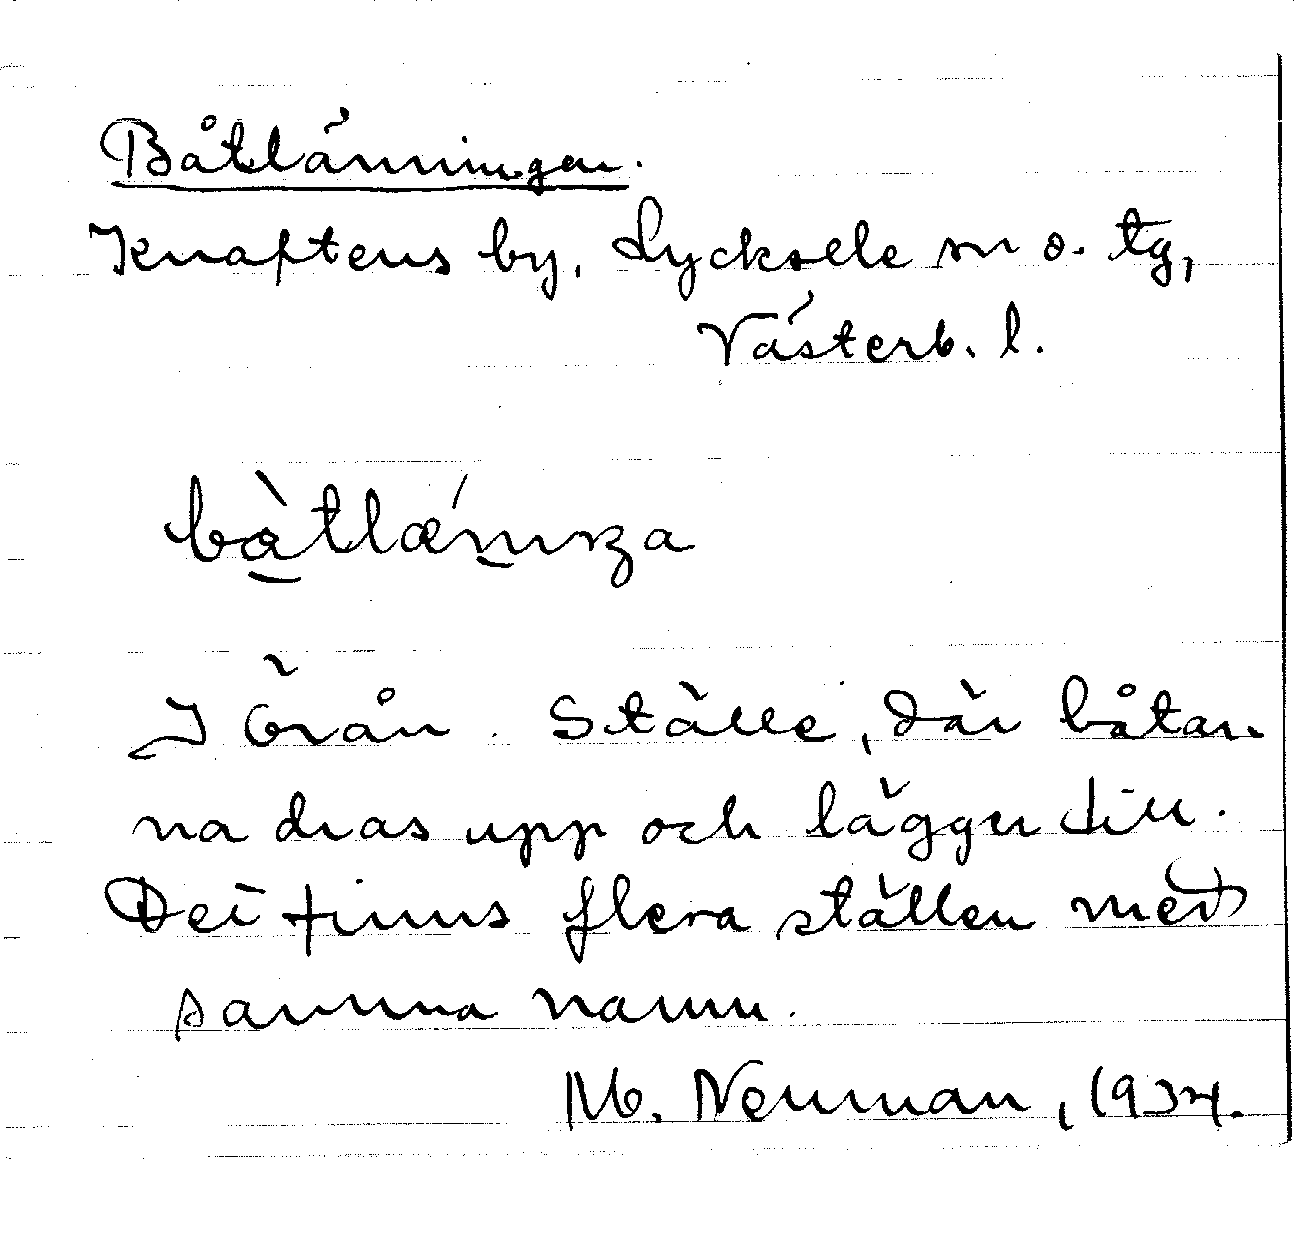 Båtlänningen.
Knaftens by, Lycksele sn o. tg,
Västerb. l.
I Örån. Ställe, där båtar-
na dras upp och lägger till.
Det finns flera ställen med
samma namn.
M. Neuman, 1934.